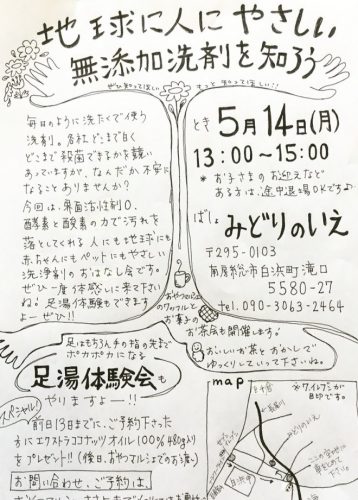 地球に人に やさしい
無添加洗剤を知ろう
ぜひ知ってほしい
もっと知ってほしい!!
毎日のように洗たくで使う
洗剤。各社どこまで白く
どこまで殺菌できるかを競い
あっていますが、なんだか不安に
なることありませんか?
今回は、界面活性剤0。
酵素と酸素の力で汚れを
落としてくれる 人にも地球にも
赤ちゃんにもペットにもやさしい
洗浄剤のおはなし会です。
ぜひ一度体感しに来て下さい
ね。足湯体験もできます
よーぜひ!!
とき 5月14日(月)
13:00~15:00
* お子さまのお迎えなど
ある方は、途中退場OKですよ
ばしょ みどりのいえ
〒295-0103
南房総市白浜町滝口
5580-27
tel. 090-3063-2464
おやつマルシェ
のワッフルと
お菓子の
お茶会も開催します!
おいしいお茶とおかしで
ゆっくりしていって下さいね。
足はもちろん手の指の先まで
ポカポカになる
足湯体験会も
やりますよー!!
スペシャル!
前日13日までに、ご予約下さった
方にエクストラココナッツオイル(100% 480g入り)
をプレゼント!!(後日、おやつマルシェでのお渡し)
お問い合わせ、ご予約は、
map
至千倉
*ワイルフミが
目印です。
みどりのいえ
ここの空地に
車をとめて
下さい。